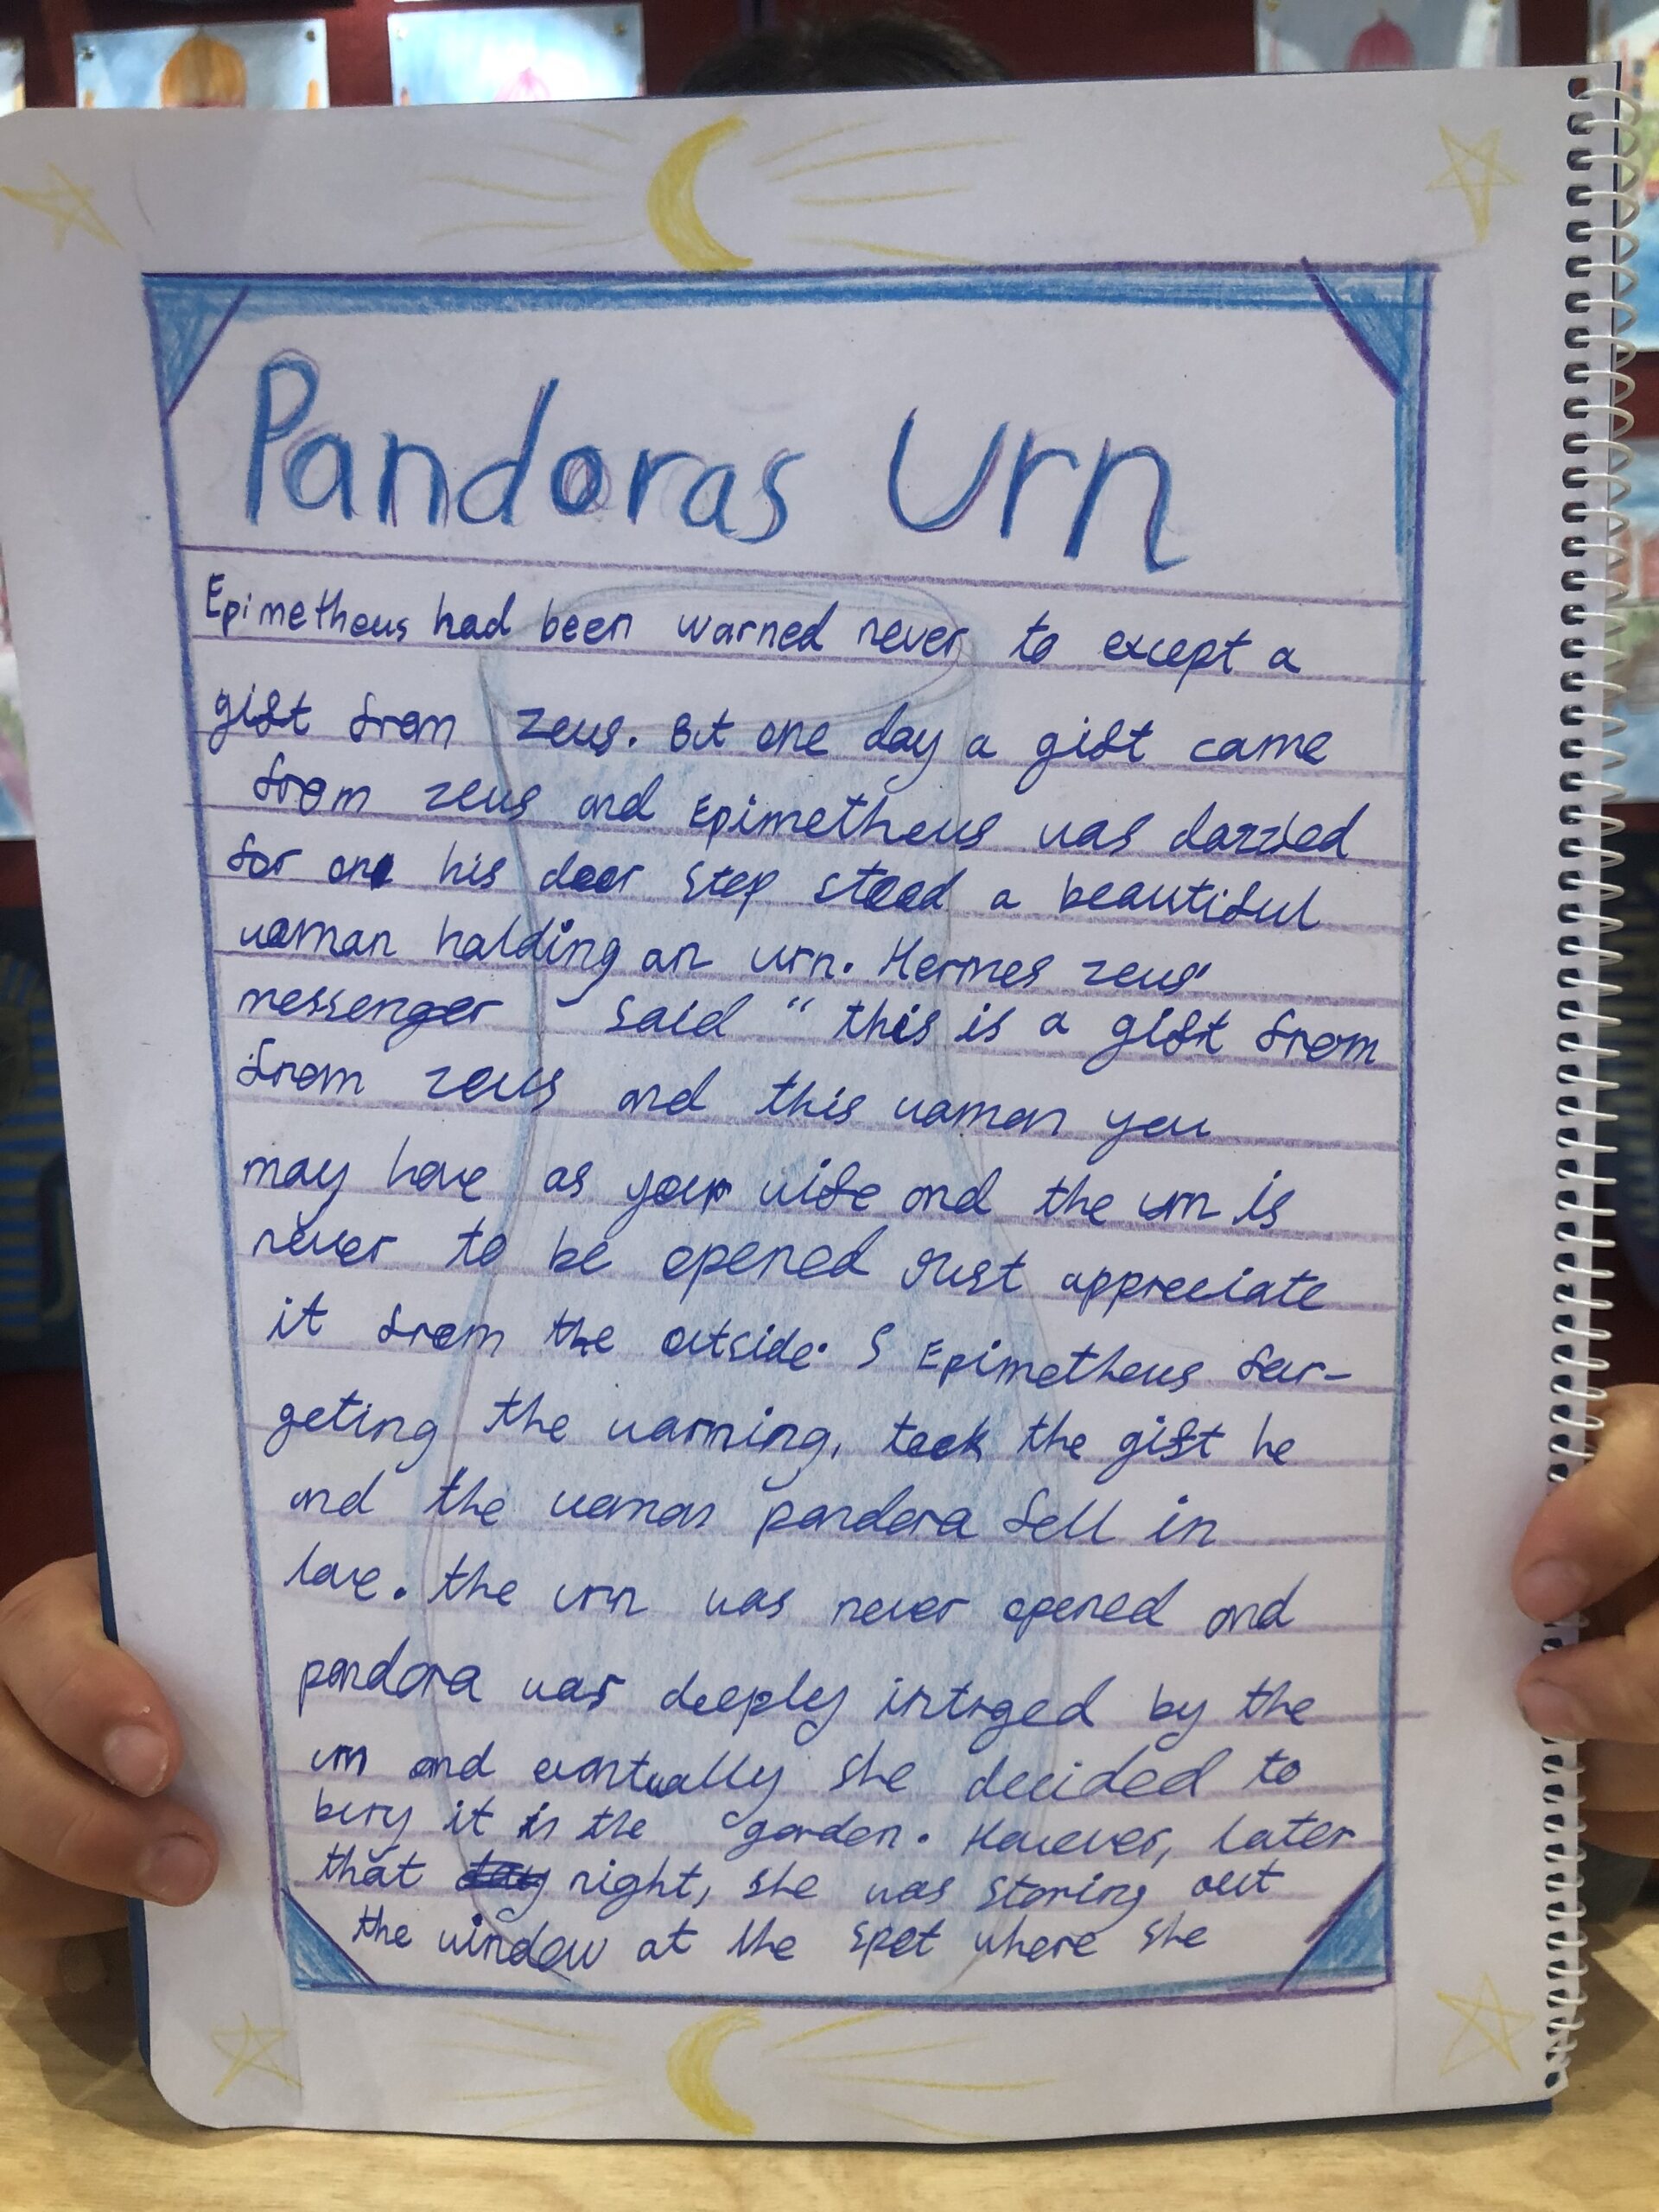 Pandoras Urn
Epimetheus had been warned never to except a
gift from Zeus. But one day a gift came
from zeus and Epimetheus was dazzled
for one his door step stood a beautiful
woman holding an urn. Hermes zeus'
messenger said " this is a gift from
from zeus and this woman you
may have as your wife and the urn is
never to be opened Just appreciate
it from the outside. S Epimetheus for-
geting the warning, took the gift he
and the woman pandora fell in
love. the urn was never opened and
pandora was deeply intriged by the
urn and eventually she decided to
bury it in the garden. However, later
that day night, she was staring out
the window at the spot where she